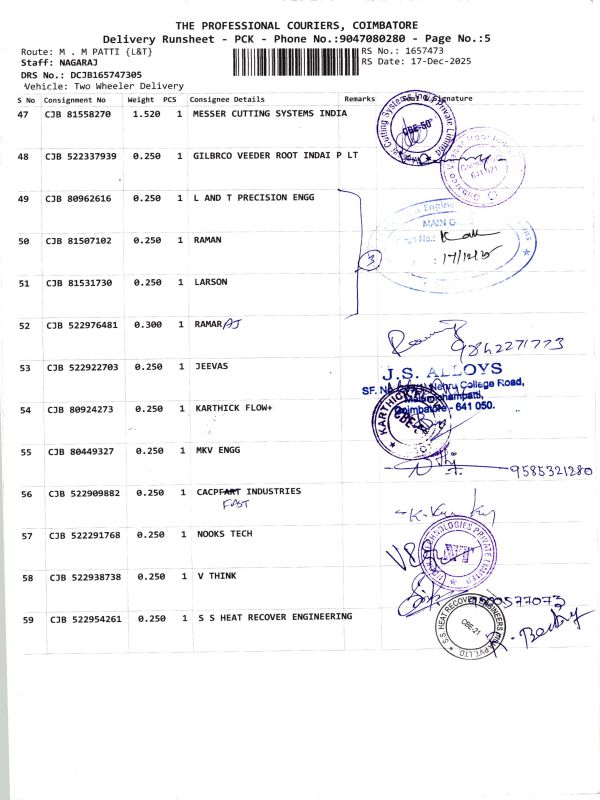 THE PROFESSIONAL COURIERS, COIMBATORE
Delivery Runsheet - PCK - Phone No.:9047080280 - Page No.:5
Route: M . M PATTI {L&T} RS No.: 1657473
Staff: NAGARAJ RS Date: 17-Dec-2025
DRS No.: DCJB165747305
Vehicle: Two Wheeler Delivery
S No Consignment No Weight PCS Consignee Details Remarks Signature
47 CJB 81558270 1.520 1 MESSER CUTTING SYSTEMS INDIA
CBE-50
48 CJB 522337939 0.250 1 GILBRCO VEEDER ROOT INDAI P LT
49 CJB 80962616 0.250 1 L AND T PRECISION ENGG
MAIN
50 CJB 81507102 0.250 1 RAMAN
17/12/25
3
51 CJB 81531730 0.250 1 LARSON
52 CJB 522976481 0.300 1 RAMARAJ
9842271773
53 CJB 522922703 0.250 1 JEEVAS
J.S. ALLOYS
Nehru College Road,
Coimbatore - 641 050.
54 CJB 80924273 0.250 1 KARTHICK FLOW+
KARTHICK
55 CJB 80449327 0.250 1 MKV ENGG
9585321280
56 CJB 522909882 0.250 1 CACPFART INDUSTRIES
FAST
57 CJB 522291768 0.250 1 NOOKS TECH
TECHNOLOGIES PRIVATE LIMITED
58 CJB 522938738 0.250 1 V THINK
59 CJB 522954261 0.250 1 S S HEAT RECOVER ENGINEERING
S.S. HEAT RECOVERY ENGINEERS
CBE-21